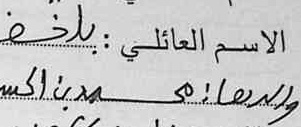 الاسم العائلي : بلخضـ
والدها: محمد بن الحسـ